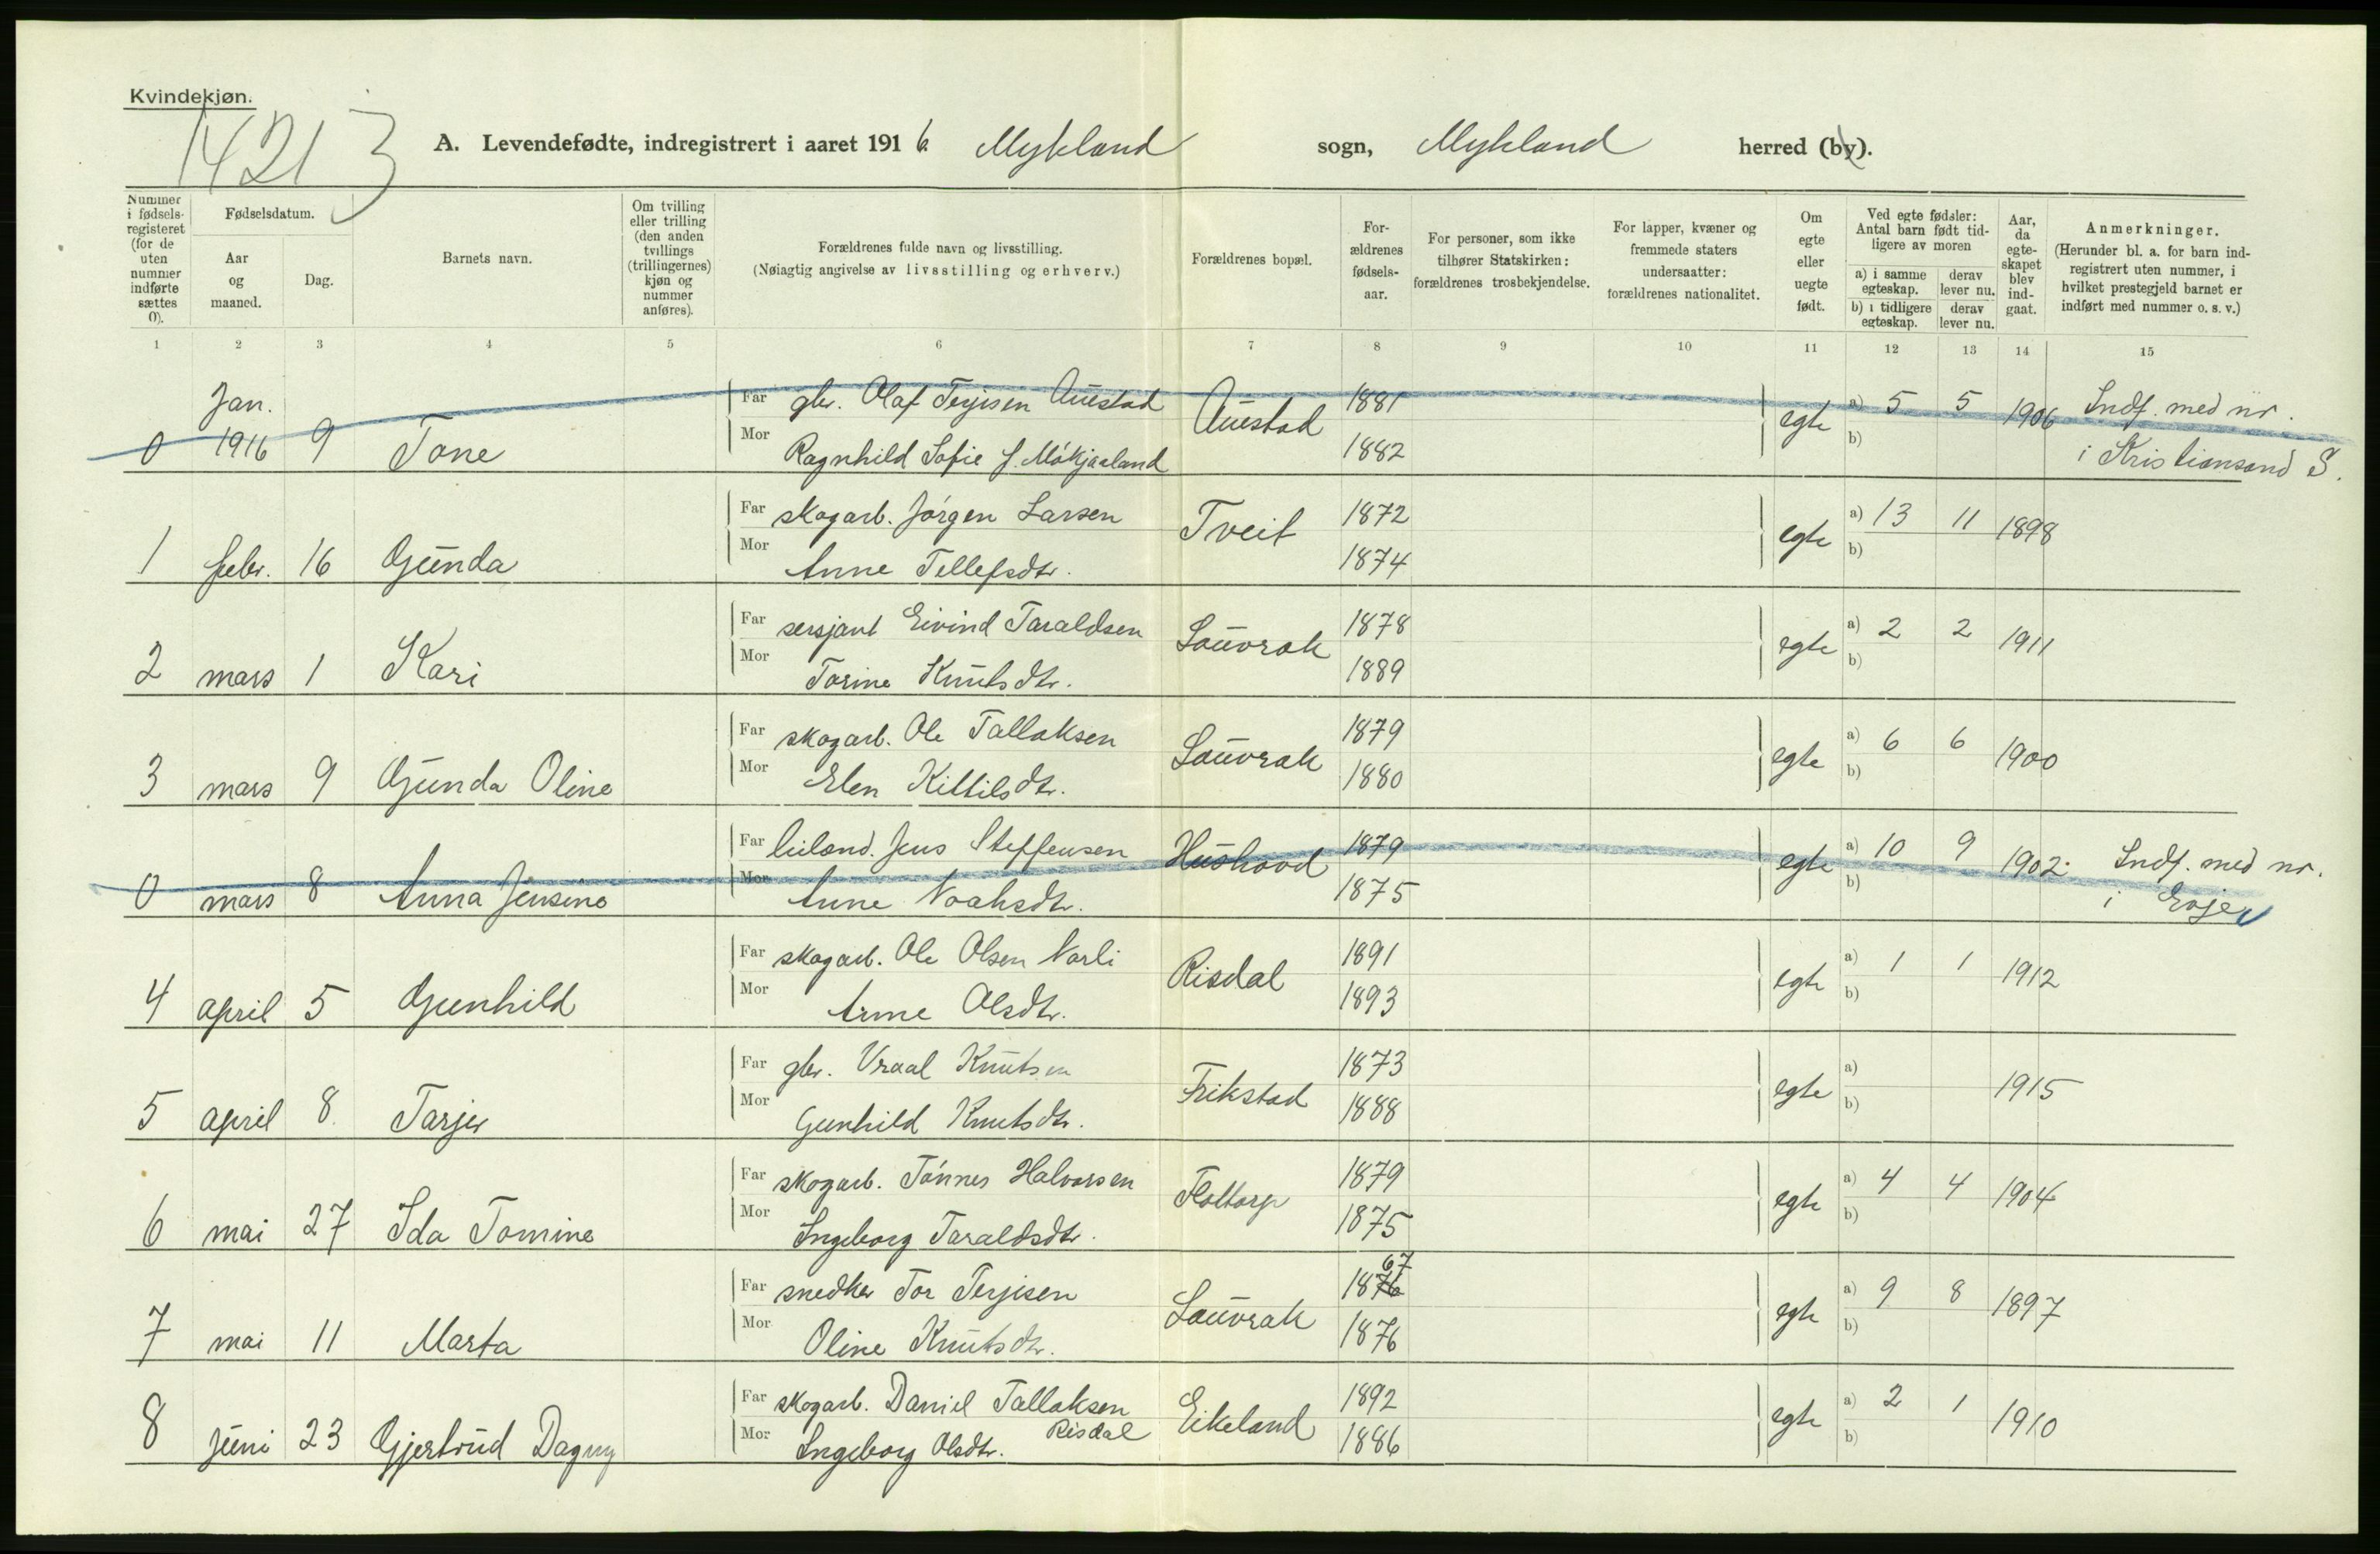 Kvindekjøn.
14213
A. Levendefødte, indregistrert i aaret 1916. Mykland sogn, Mykland herred (by).
Nummer i fødselsregisteret (for de uten nummer indførte sættes 0).
Fødselsdatum.
Aar og maaned.
Dag.
Barnets navn.
Om tvilling eller trilling (den anden tvillings (trillingernes) kjøn og nummer anføres).
Forældrenes fulde navn og livsstilling.
(Nøiagtig angivelse av livsstilling og erhverv.)
Forældrenes bopæl.
Forældrenes fødselsaar.
For personer, som ikke tilhører Statskirken: forældrenes trosbekjendelse.
For lapper, kvæner og fremmede staters undersaatter: forældrenes nationalitet.
Om egte eller uegte født.
Ved egte fødsler: Antal barn født tidligere av moren
a) i samme egteskap. derav lever nu.
b) i tidligere egteskap. derav lever nu.
Aar, da egteskapet blev indgaat.
Anmerkninger.
(Herunder bl. a. for barn indregistrert uten nummer, i hvilket prestegjeld barnet er indført med nummer o. s. v.)
1 2 3 4 5 6 7 8 9 10 11 12 13 14 15
Jan. Far gbr. Olaf Terjisen Auestad Auestad 1881 egte a) 5 5 1906 Indf. med nr.
0 1916 9 Tone Mor Ragnhild Sofie f. Mökjaaland 1882 b) i Kristiansand S.
Far skogarb. Jörgen Larsen Tveit 1872 egte a) 13 11 1898
1 febr. 16 Gunda Mor Anne Tellefsdtr. 1874 b)
Far sersjant Eivind Taraldsen Lauvrak 1878 egte a) 2 2 1911
2 mars 1 Kari Mor Torine Knutsdtr. 1889 b)
Far skogarb. Ole Tallaksen Lauvrak 1879 egte a) 6 6 1900
3 mars 9 Gunda Oline Mor Elen Kittilsdtr. 1880 b)
Far Jens Steffensen Hushovd 1879 egte a) 10 9 1902. Indf. med nr.
0 mars 8 Anna Jensine Mor Anne Noahsdtr. 1875 b) i Evje
Far skogarb. Ole Olsen Narli Risdal 1891 egte a) 1 1 1912
4 april 5 Gunhild Mor Anne Olsdtr. 1893 b)
Far gbr. Vraal Knutsen Frikstad 1873 egte a) 1915
5 april 8. Tarjer Mor Gunhild Knutsdtr. 1888 b)
Far skogarb. Tönnes Halvorsen Flottorp 1879 egte a) 4 4 1904
6 mai 27 Ida Tomine Mor Ingeborg Taraldsdtr. 1875 b)
67
Far snedker Tor Terjisen Lauvrak 1876 egte a) 9 8 1897
7 mai 11 Marta Mor Oline Knutsdtr. 1876 b)
Far skogarb. Daniel Tallaksen Risdal Eikeland 1892 egte a) 2 1 1910
8 juni 23 Gjertrud Dagny Mor Ingeborg Olsdtr. 1886 b)